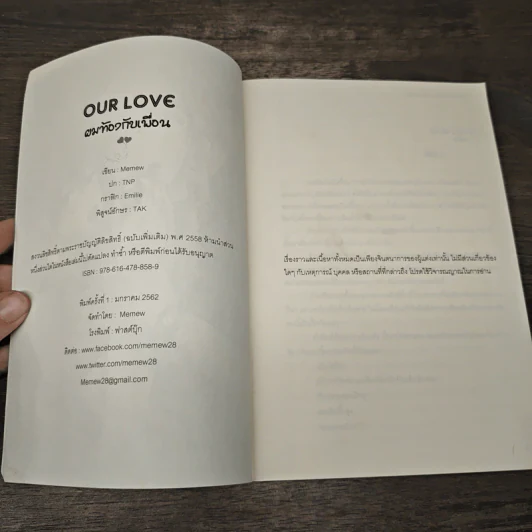 OUR LOVE
ผมท้องกับเพื่อน
เขียน : Memew
ปก : TNP
กราฟิก : Emilie
พิสูจน์อักษร : TAK
สงวนลิขสิทธิ์ตามพระราชบัญญัติลิขสิทธิ์ (ฉบับเพิ่มเติม) พ.ศ 2558 ห้ามนำส่วน
หนึ่งส่วนใดในหนังสือเล่มนี้ไปดัดแปลง ทำซ้ำ หรือตีพิมพ์ก่อนได้รับอนุญาต
ISBN : 978-616-478-858-9
พิมพ์ครั้งที่ 1 : มกราคม 2562
จัดทำโดย : Memew
โรงพิมพ์ : ฟาสต์บุ๊ก
ติดต่อ : www.facebook.com/memew28
www.twitter.com/memew28
Memew28@gmail.com
เรื่องราวและเนื้อหาทั้งหมดเป็นเพียงจินตนาการของผู้แต่งเท่านั้น ไม่มีส่วนเกี่ยวข้อง
ใดๆ กับเหตุการณ์ บุคคล หรือสถานที่ที่กล่าวถึง โปรดใช้วิจารณญาณในการอ่าน